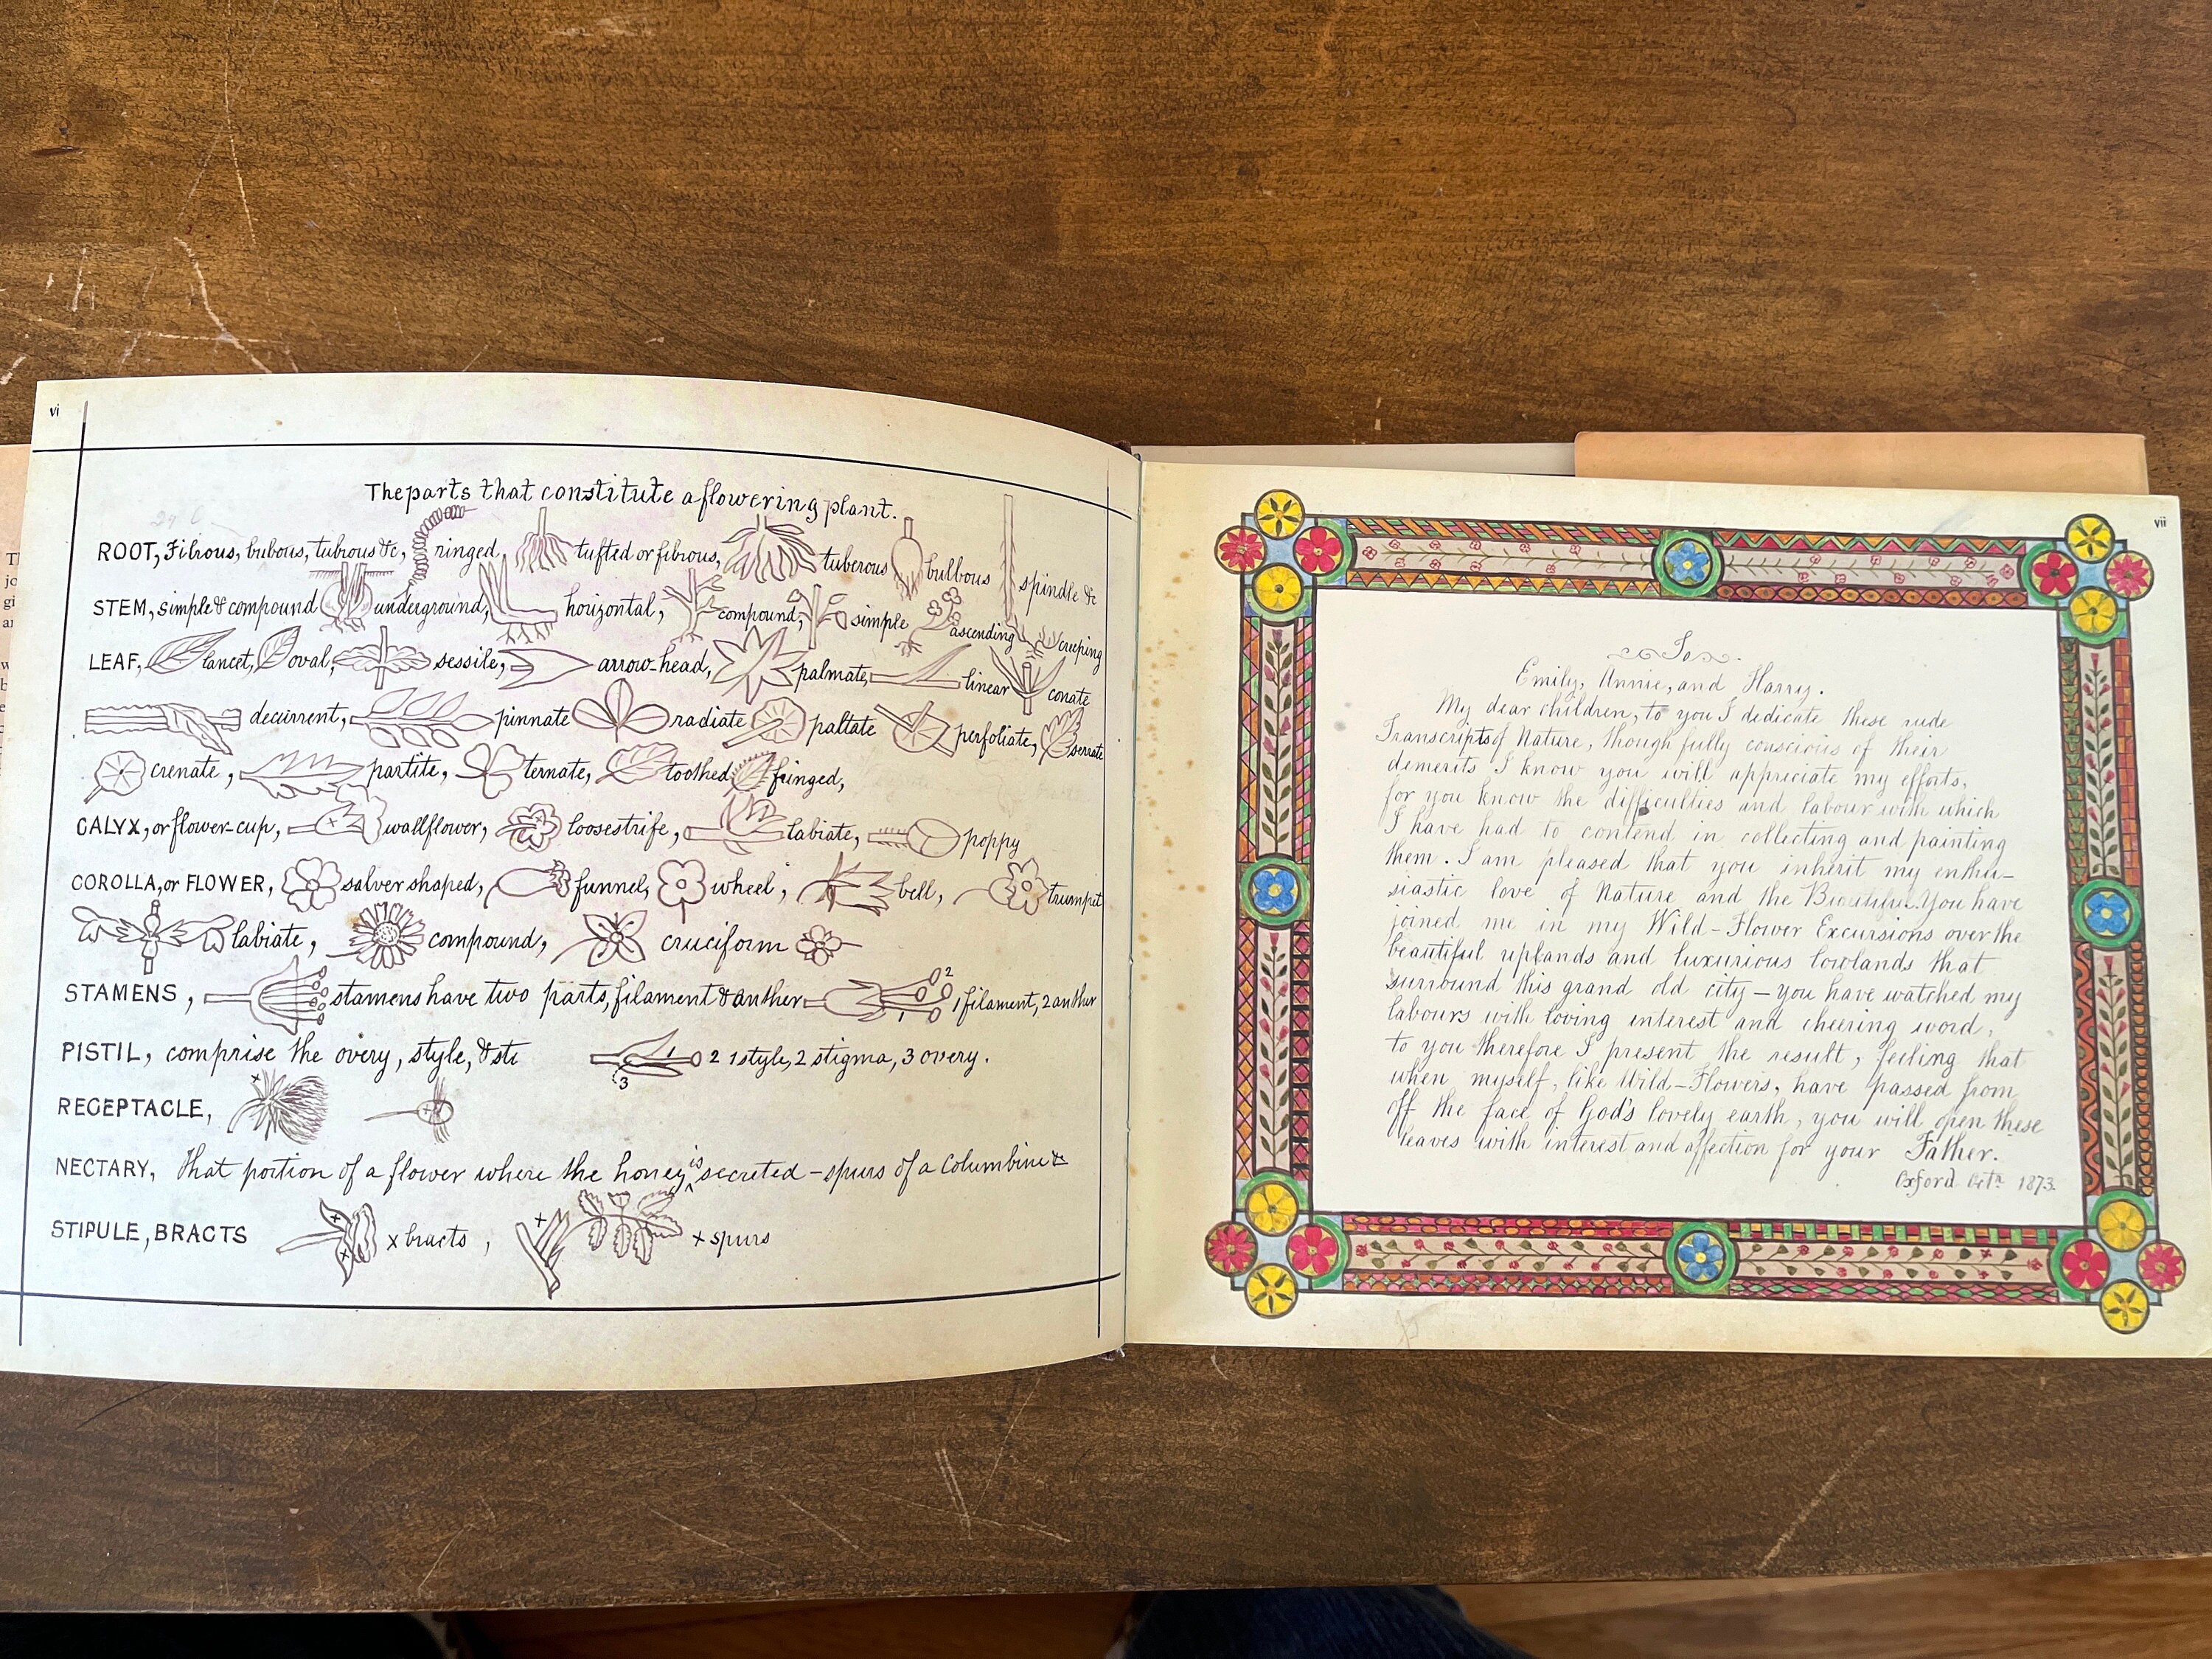 vi
The parts that constitute a flowering plant.
ROOT, Fibrous, bubous, tubrous &c, ringed, tufted or fibrous, tuberous bulbous spindle &c
STEM, simple & compound underground, horizontal, compound, simple ascending creeping
LEAF, lancet, oval, sessile, arrow-head, palmate, linear conate
decurrent, pinnate radiate paltate perfoliate, serrate
crenate, partite, ternate, toothed fringed,
CALYX, or flower-cup, wallflower, loosestrife, labiate, poppy
COROLLA, or FLOWER, salver shaped, funnel, wheel, bell, trumpet
labiate, compound, cruciform
STAMENS, stamens have two parts, filament & anther 1 2 1 filament, 2 anther
PISTIL, comprise the overy, style, & sti 1 2 3 1 style, 2 stigma, 3 overy.
RECEPTACLE, x x
NECTARY, That portion of a flower where the honey is secreted – spurs of a Columbine &c
STIPULE, BRACTS x x x bracts, x x spurs
vii
To.
Emily, Annie, and Harry.
My dear children, to you I dedicate these rude
Transcripts of Nature, though fully conscious of their
demerits I know you will appreciate my efforts,
for you know the difficulties and labour with which
I have had to contend in collecting and painting
them. I am pleased that you inherit my enthu-
siastic love of Nature and the Beautiful. You have
joined me in my Wild-Flower Excursions over the
beautiful uplands and luxurious lowlands that
surround this grand old city – you have watched my
labours with loving interest and cheering word,
to you therefore I present the result, feeling that
when myself, like Wild-Flowers, have passed from
off the face of God's lovely earth, you will open these
leaves with interest and affection for your Father.
Oxford Octr. 1873.